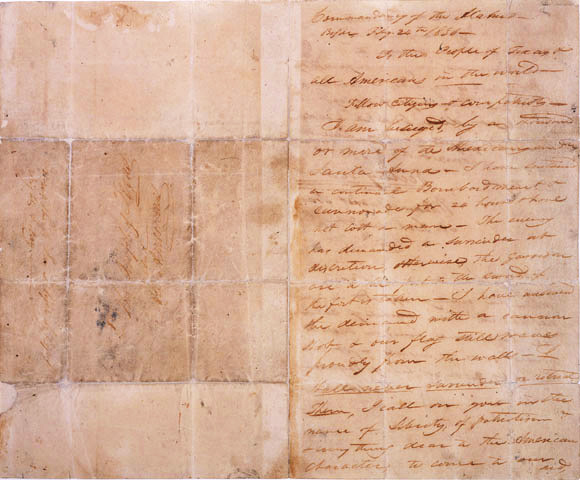 Commandancy of the Alamo—
Bejar Fby. 24th 1836—
To the People of Texas &
all Americans in the world—
Fellow Citizens & compatriots—
I am besieged, by a thousand
or more of the Mexicans under
Santa Anna — I have sustained
a continual Bombardment &
cannonade for 24 hours & have
not lost a man — The enemy
has demanded a surrender at
discretion, otherwise, the garrison
are to be put to the sword, if
the fort is taken — I have answered
the demand with a cannon
shot, & our flag still waves
proudly from the walls — I
shall never surrender or retreat
Then, I call on you in the
name of Liberty, of patriotism &
everything dear to the American
character, to come to our aid